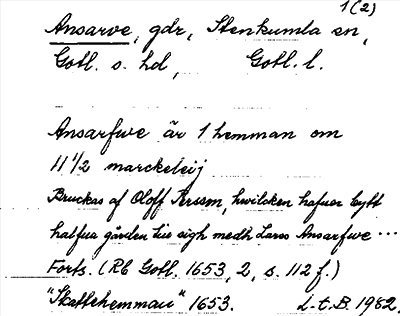 1(2)
Ansarve, gdr, Stenkumla sn,
Gotl. s. hd, Gotl. l.
Ansarfwe är 1 hemman om
11 1/2 marckeleij
Bruckas af Oloff Persson, hwilcken hafuer bytt
halfua gården sigh medh Lares Ansarfwe ...
Forts. (Rb Gotl. 1653, 2, s. 112 f.)
"Skattehemman" 1653. L-t.B. 1962.